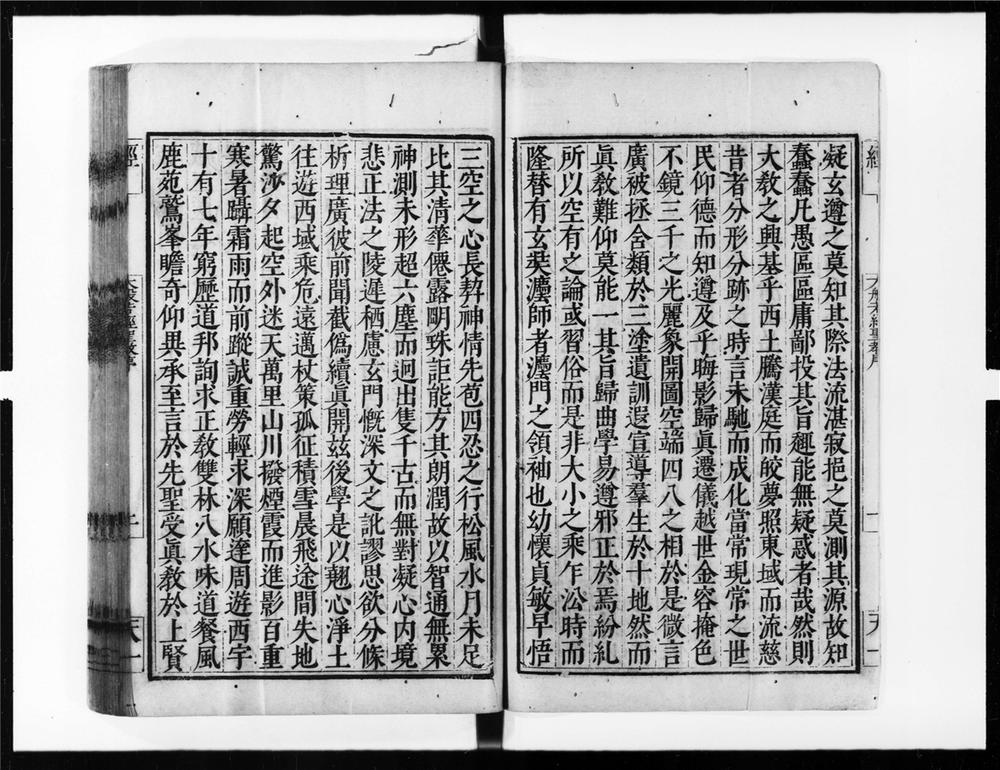 凝玄遵之莫知其際法流湛寂挹之莫測其源故知
蠢蠢凡愚區區庸鄙投其旨趣能無疑惑者哉然則
大教之興基乎西土騰漢庭而皎夢照東域而流慈
昔者分形分跡之時言未馳而成化當常現常之世
民仰德而知遵及乎晦影歸真遷儀越世金容掩色
不鏡三千之光麗象開圖空端四八之相於是微言
廣被拯含類於三塗遺訓遐宣導羣生於十地然而
眞教難仰莫能一其旨歸曲學易遵邪正於焉紛糺
所以空有之論或習俗而是非大小之乘乍㳂時而
隆替有玄奘灋師者灋門之領袖也幼懷貞敏早悟
三空之心長契神情先苞四忍之行松風水月未足
比其清華僊露朙珠詎能方其朗潤故以智通無累
神測未形超六塵而迥出隻千古而無對凝心内境
悲正法之陵遲栖慮玄門慨深文之訛謬思欲分條
析理廣彼前聞截偽續眞開茲後學是以翹心淨土
往遊西域乘危遠邁杖策孤征積雪晨飛途間失地
驚沙夕起空外迷天萬里山川撥煙霞而進影百重
寒暑躡霜雨而前蹤誠重勞輕求深願達周遊西宇
十有七年窮歷道邦詢求正教雙林八水味道餐風
鹿苑鷲峯瞻奇仰異承至言於先聖受眞教於上賢